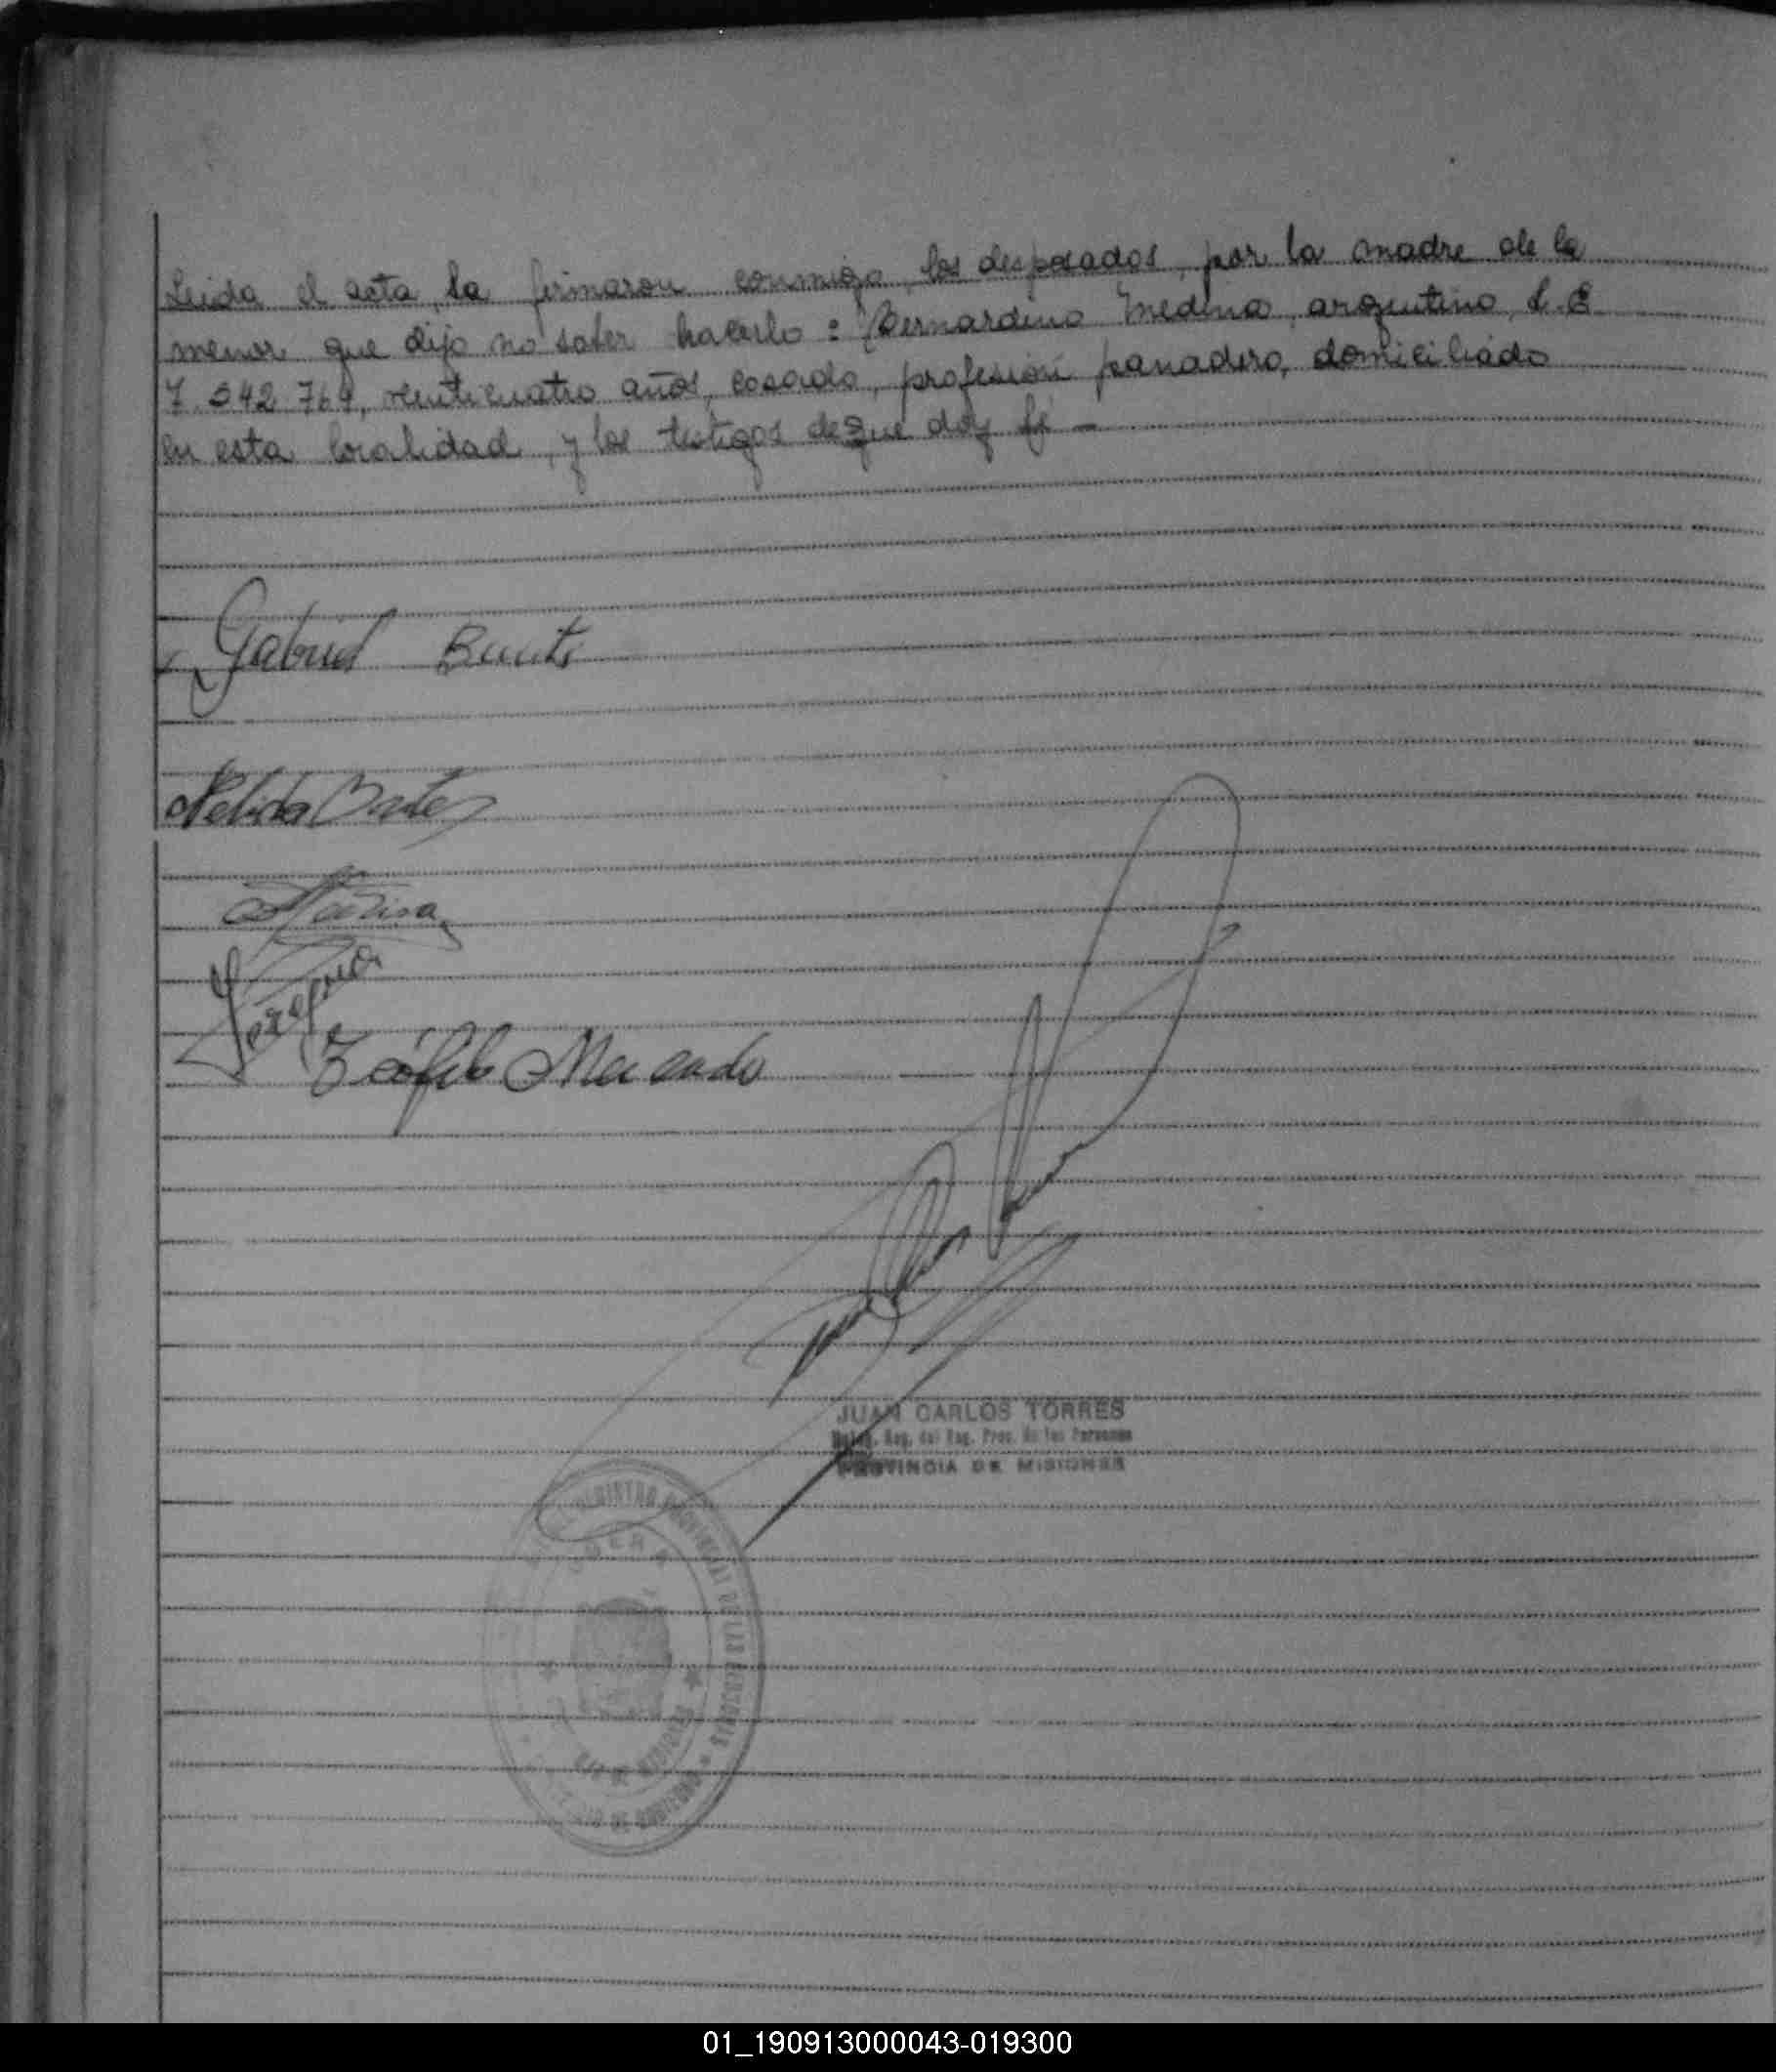 Leida el acta, la firmaron conmigo, los desposados, por la madre de la
menor que dijo no saber hacerlo: Bernardino Medina, argentino, L.E
7.542.764, venticuatro años, casado, profesión panadero, domiciliado
en esta localidad, y los testigos de que doy fé -
Gabriel Benite
Nelida
Medina
Teófilo Mercado
JUAN CARLOS TORRES
Reg. del Reg. Prov. de las Personas
PROVINCIA DE MISIONES
REGISTRO PROVINCIAL DE LAS PERSONAS
OBERA
DE MISIONES
DE GOBIERNO
01_190913000043-019300